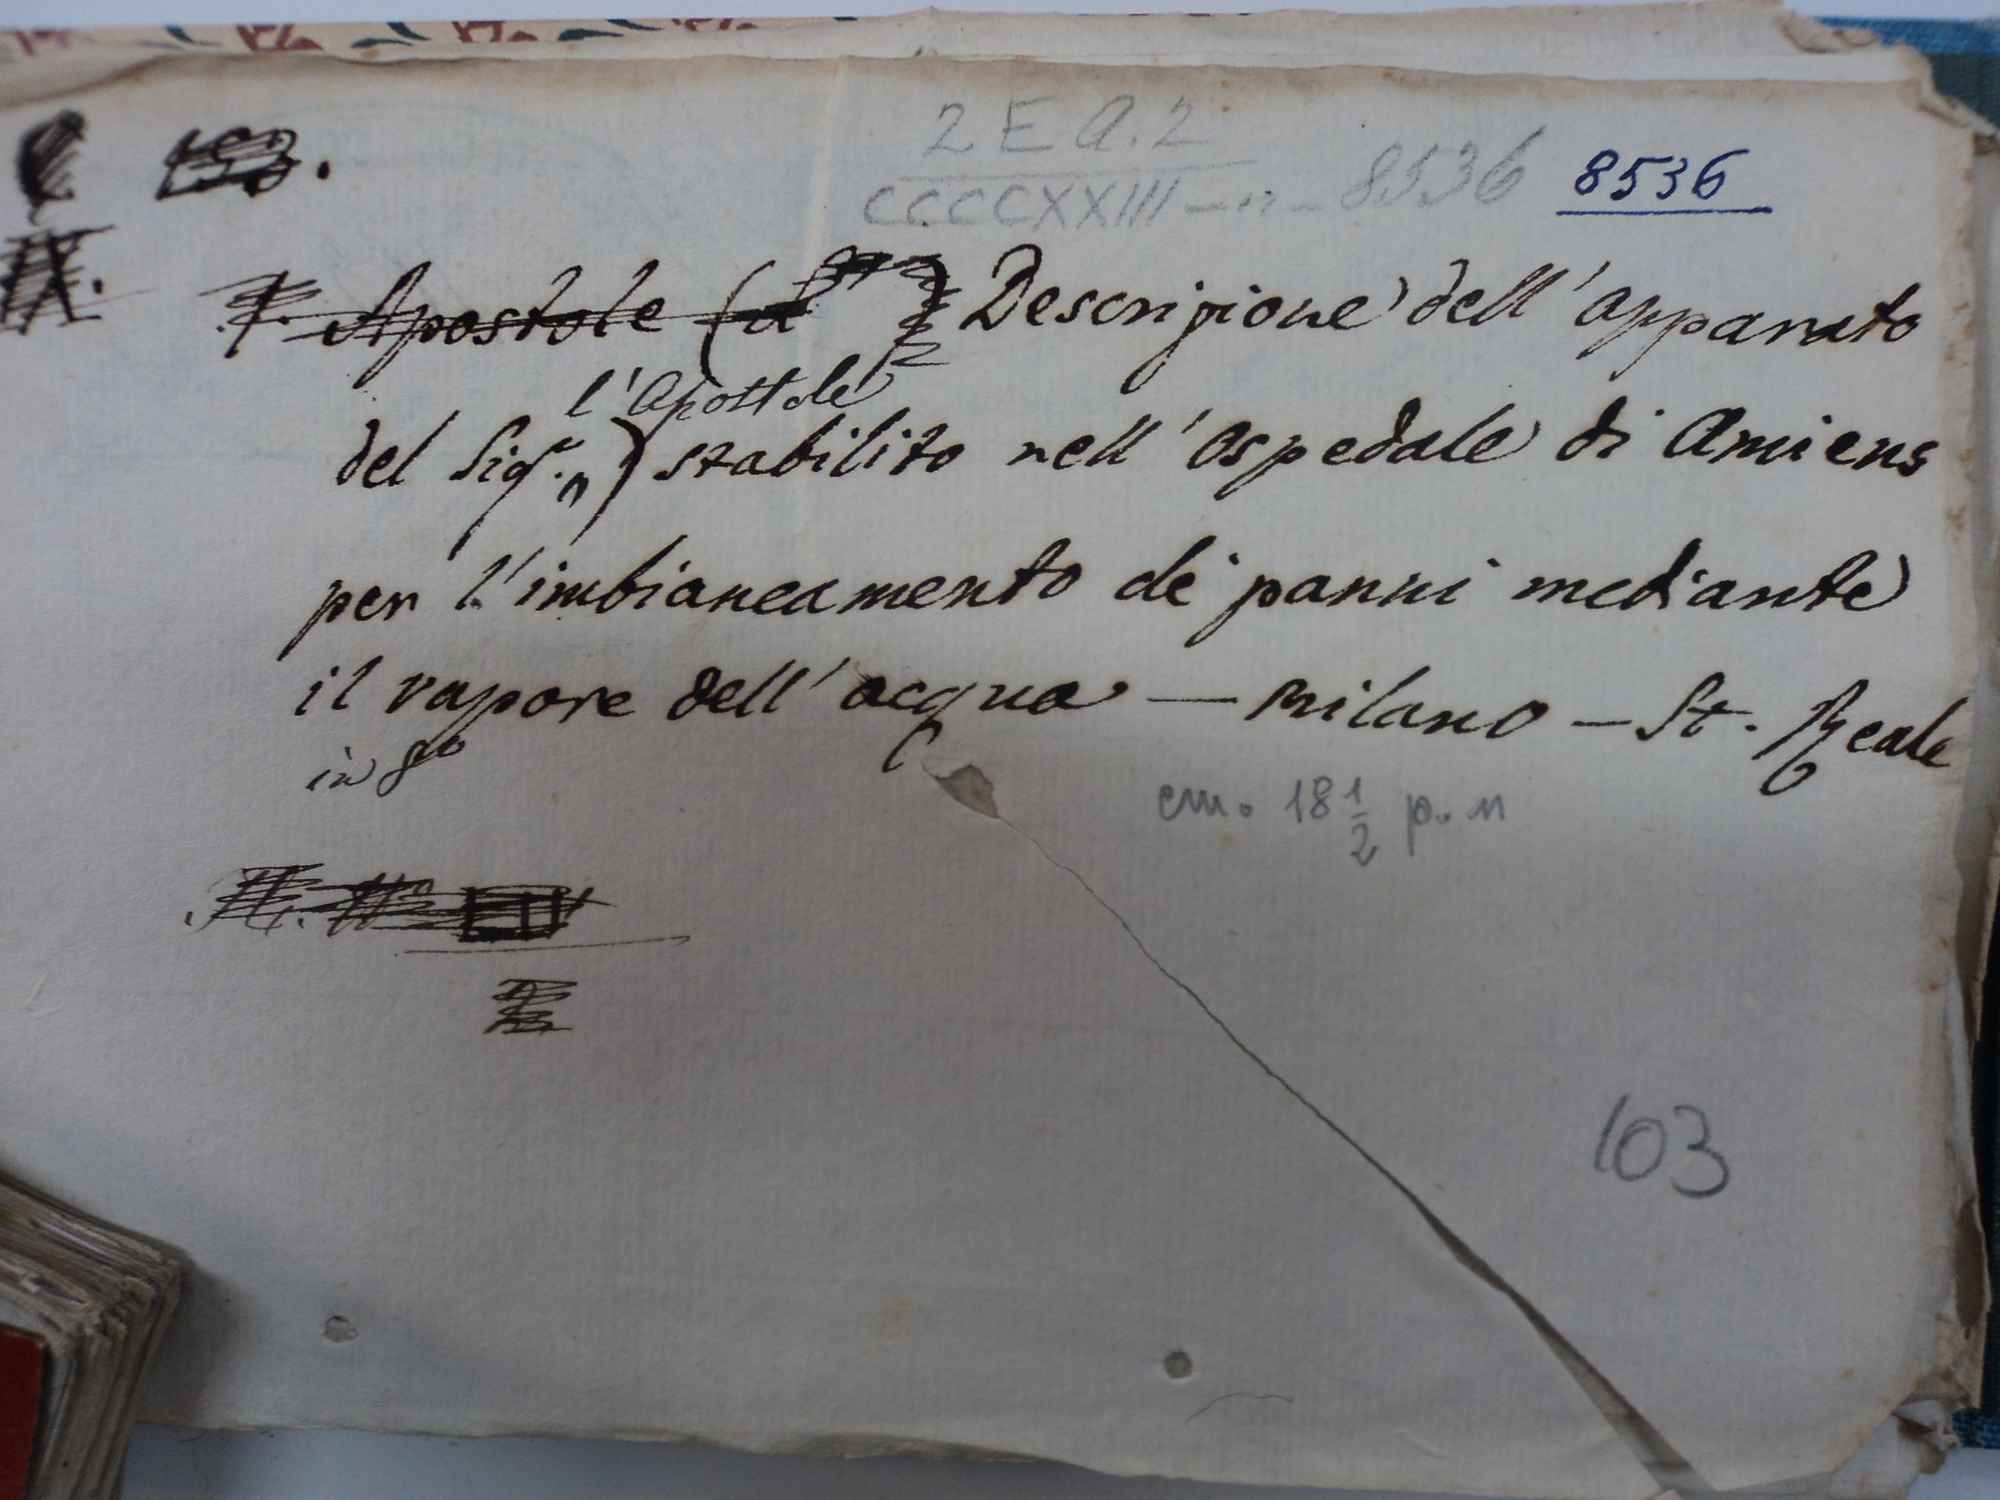 153.
2 E A. 2
CCCCXXIII - n - 8536 8536
Apostole (d' ) Descrizione dell' apparato
l'Apostole
del Sigr. ) stabilito nell' ospedale di Amiens
per l'imbiancamento de' panni mediante
il vapore dell' acqua — Milano — St. Reale
in 8°
cm. 18 1/2 p. n
103